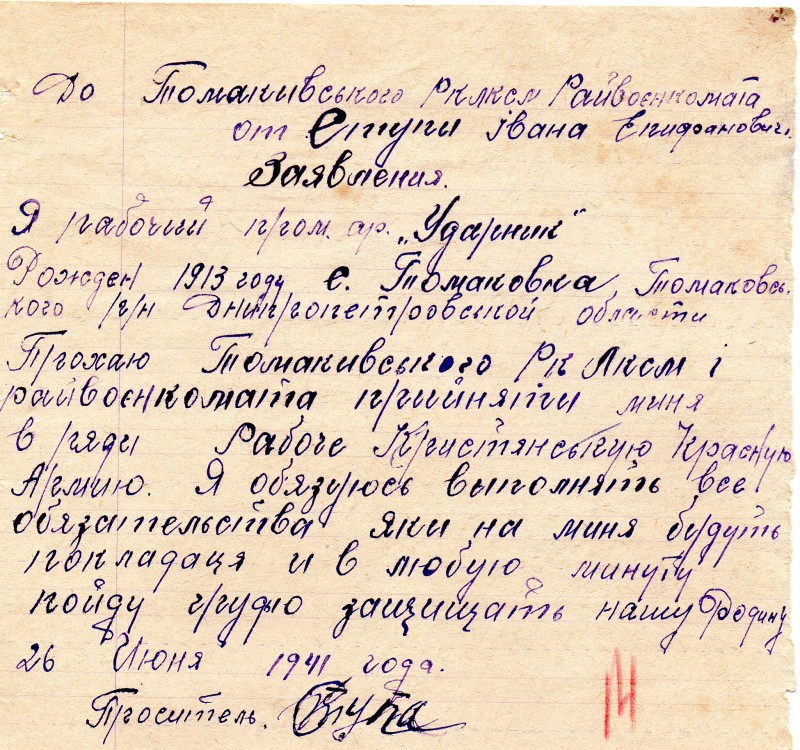 До Томакивського РКЛКСМ Райвоєнкомата
от Ступы Івана Епифановича.
Заявления.
Я рабочий пром. ар. „Ударник"
Рожден 1913 году с. Томаковка, Томаковсь-
кого р/н Днипропетровськой области
Прохаю Томакивського Рк Лксм і
райвоєнкомата прийняти миня
в ряди Рабоче Кристянською Красную
Армию. Я обязуюсь выполнять все
обязательства яки на миня будуть
покладаця и в любую минуту
пойду грудю защищать нашу Родину
26 Июня 1941 года.
Проситель. Ступа
14